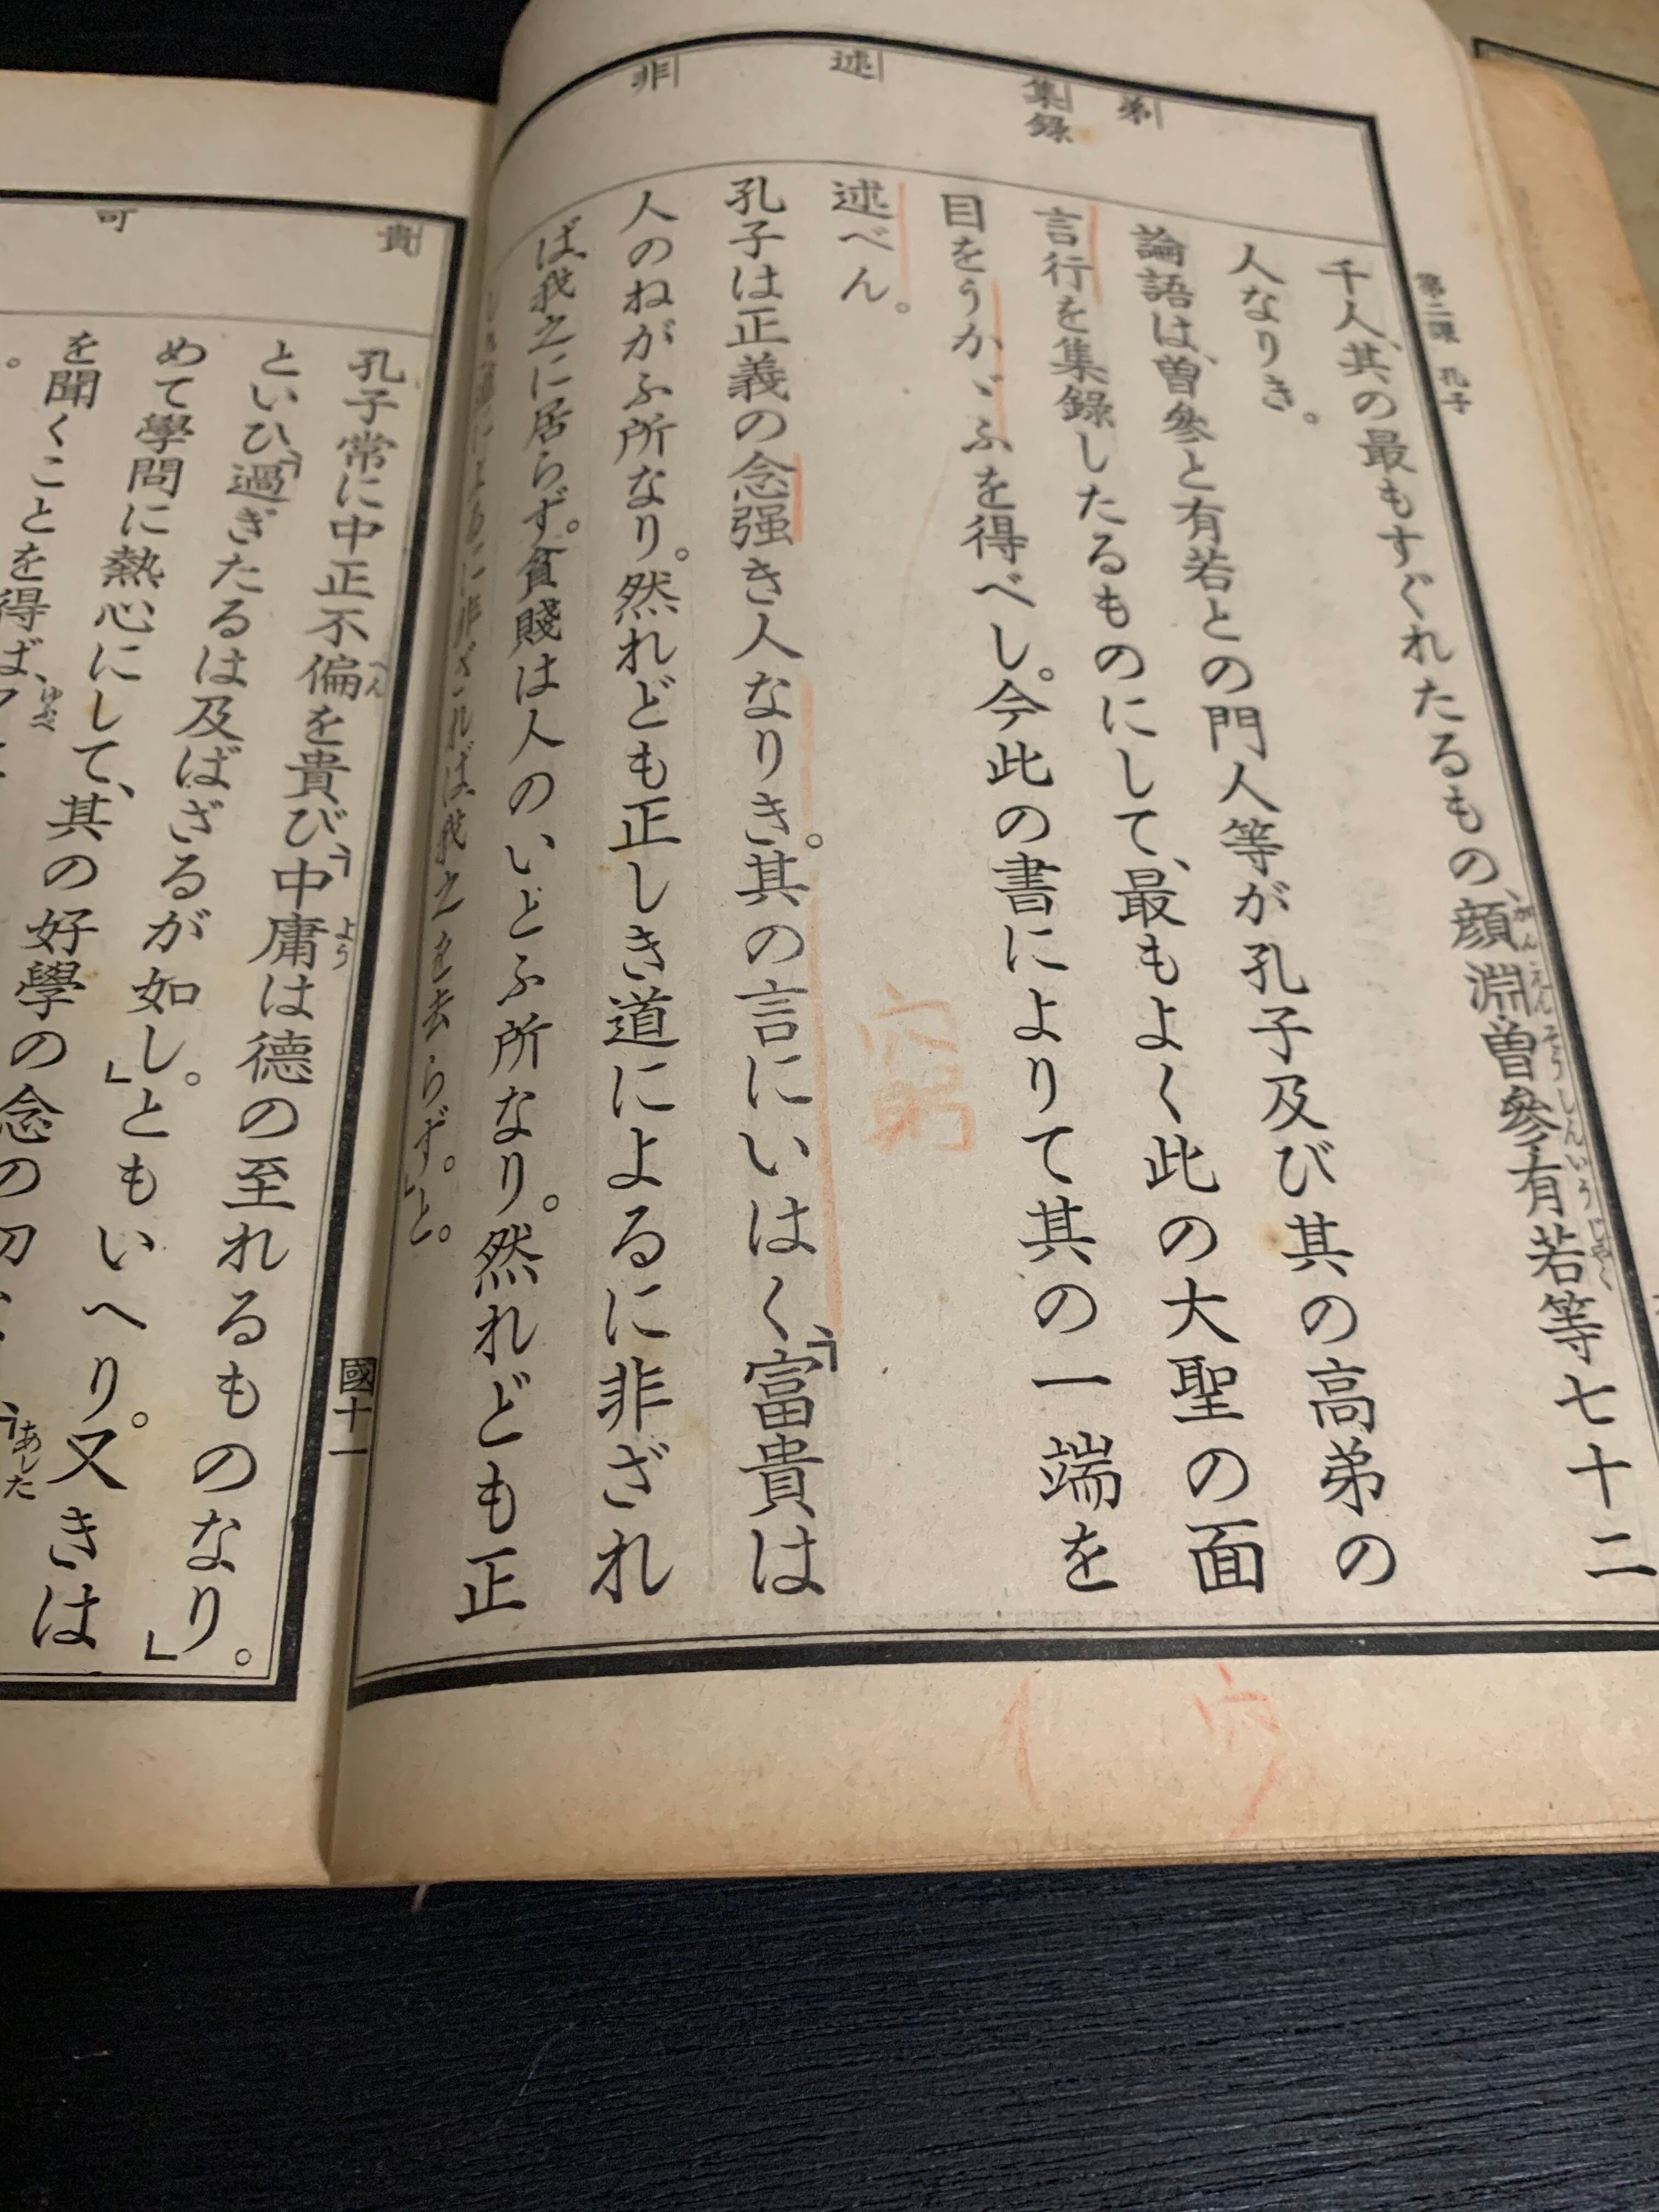 第二課 孔子
弟
集錄
述
非
千人、其の最もすぐれたるもの、顏淵・曾參・有若等七十二
人なりき。
論語は、曾參と有若との門人等が孔子及び其の高弟の
言行を集錄したるものにして、最もよく此の大聖の面
目をうかゞふを得べし。今此の書によりて其の一端を
述べん。
孔子は正義の念强き人なりき。其の言にいはく、「富貴は
人のねがふ所なり。然れども正しき道によるに非ざれ
ば、我之に居らず。貧賤は人のいとふ所なり。然れども正
しき道によるに非ざれば、我之を去らず。」と。
窮
穴
國十一
貴
可
孔子常に中正不偏を貴び、「中庸は德の至れるものなり。」
といひ、「過ぎたるは及ばざるが如し。」ともいへり。又きは
めて學問に熱心にして、其の好學の念の切
を聞くことを得ば、